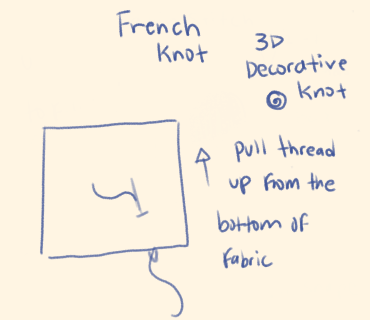 French
Knot
3D
Decorative
Knot
pull thread
up from the
bottom of
fabric